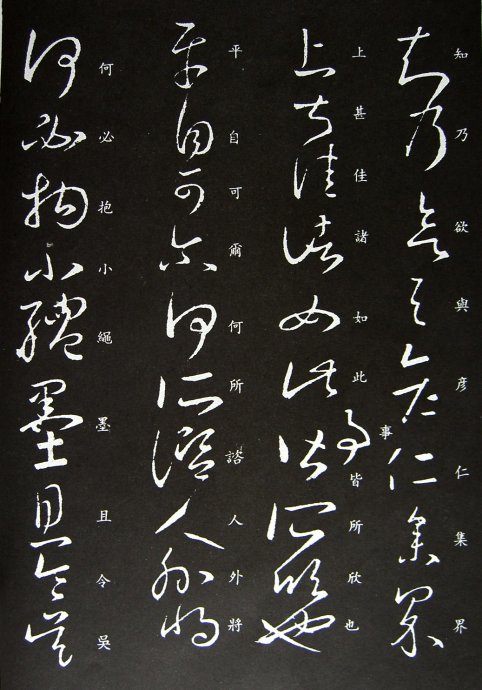 知乃欲與彥仁集界
上甚佳諸如此事皆所欣也
平自可爾何所諮人外將
何必抱小繩墨且令吳